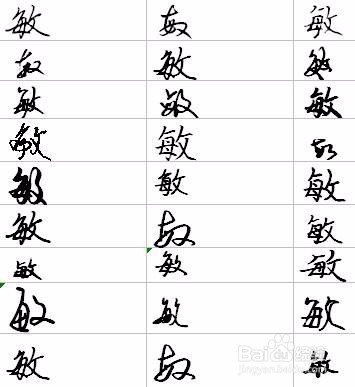 敏 敏 敏
敏 敏 敏
敏 敏 敏
敏 敏 敏
敏 敏 敏
敏 敏 敏
敏 敏 敏
敏 敏 敏
敏 敏 敏
Baidu经验
jingyan.baidu.com